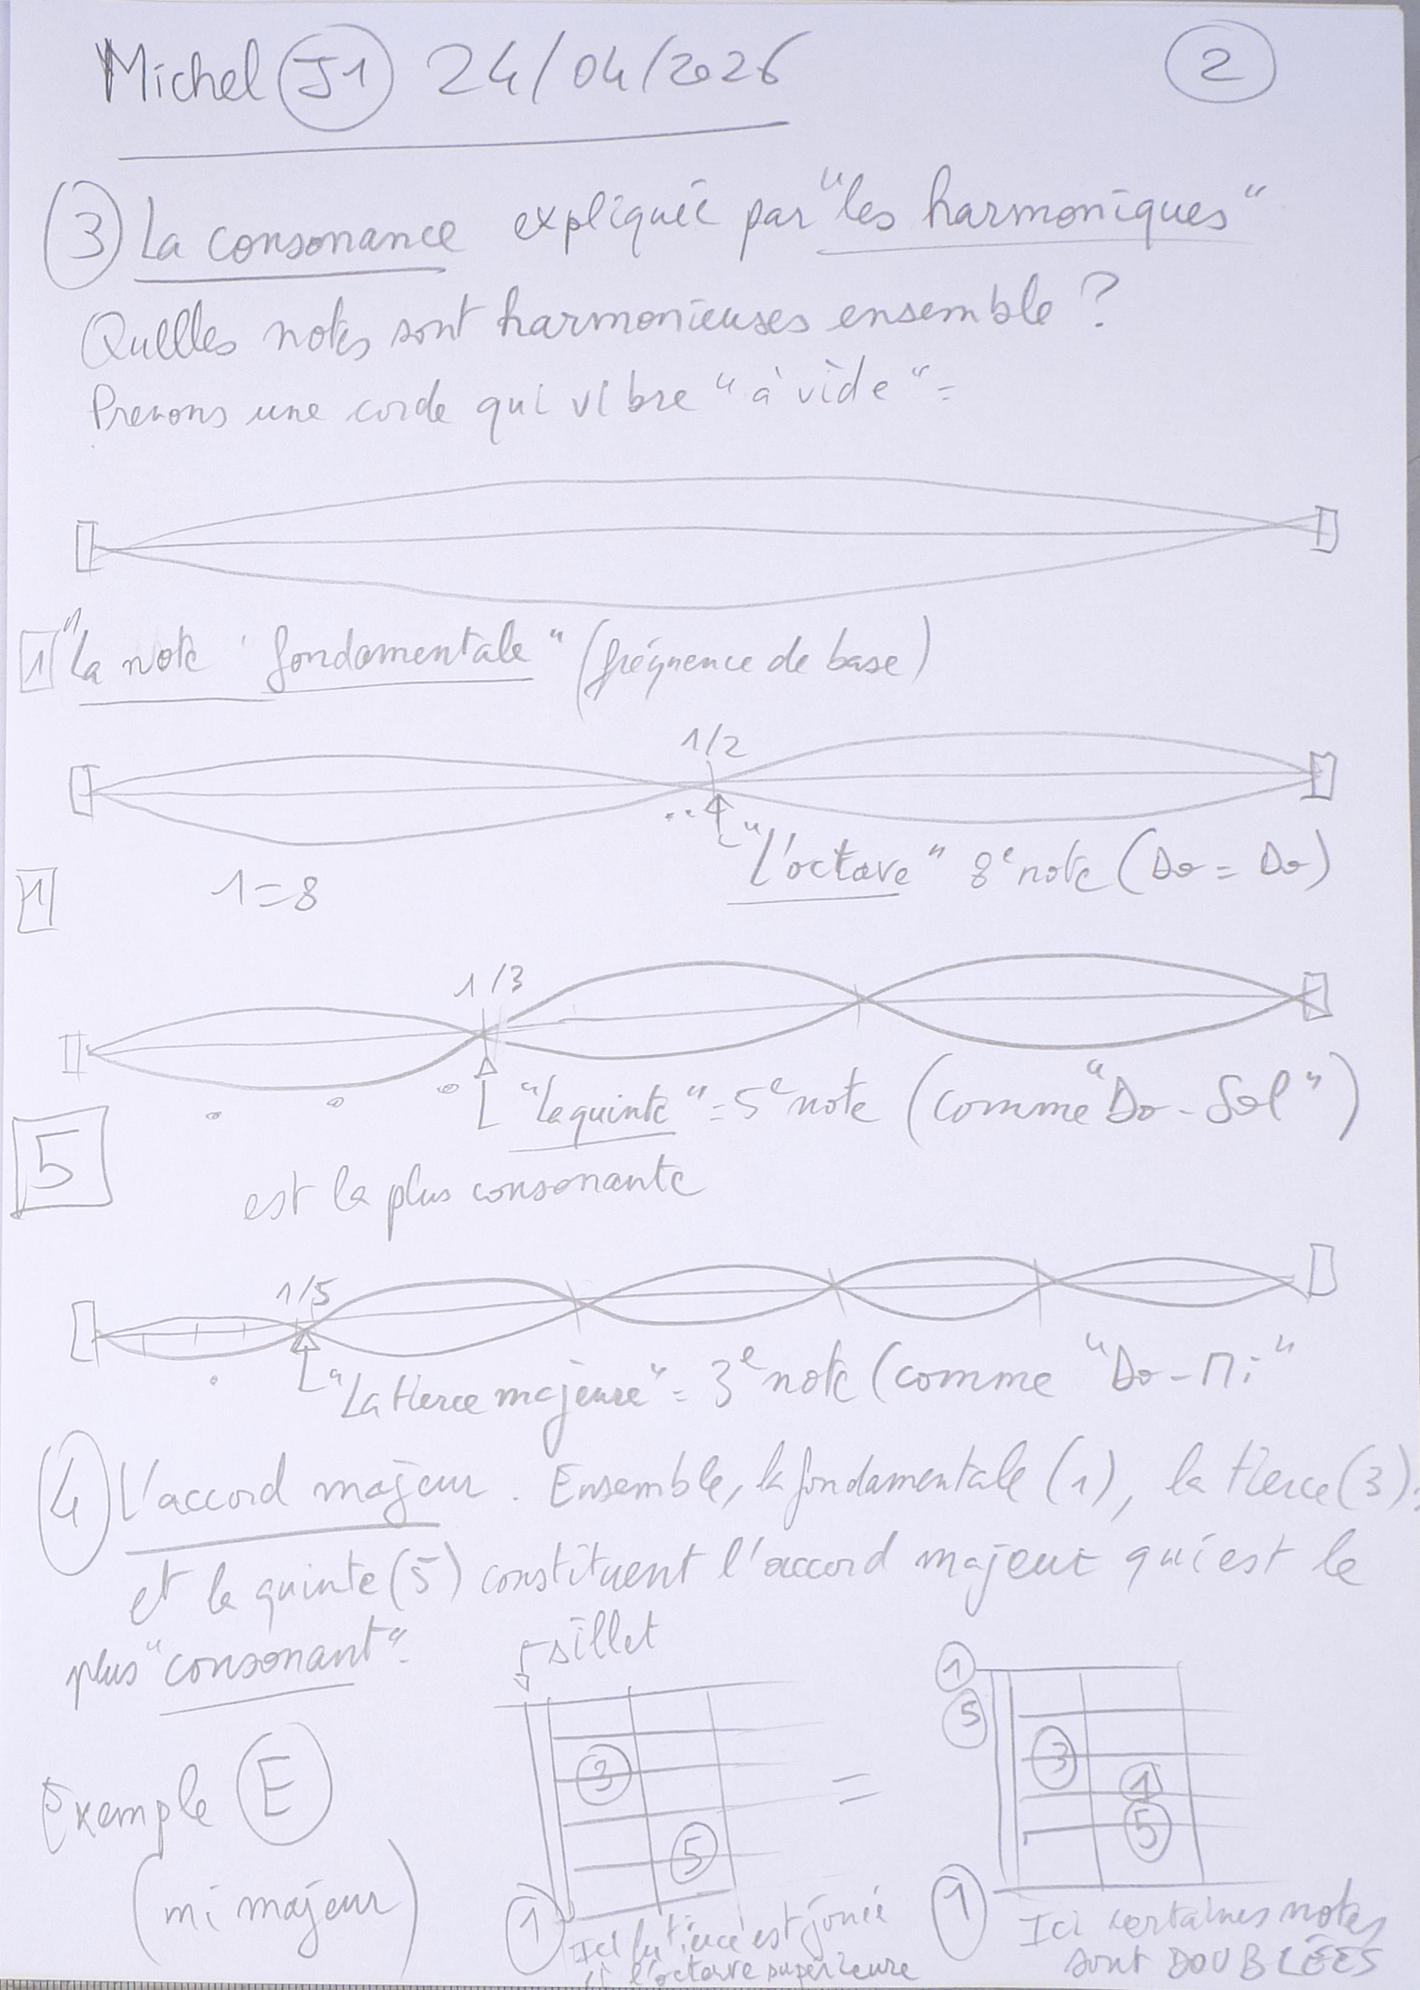 Michel J1 24/04/2026
2
3 La consonance expliquée par "les harmoniques"
Quelles notes sont harmonieuses ensemble ?
Prenons une corde qui vibre "à vide" =
1 "La note fondamentale" (fréquence de base)
1/2
"L'octave" 8e note (Do = Do)
1 1=8
1/3
"La quinte" = 5e note (comme "Do - Sol")
5
est la plus consonante
1/5
"La tierce majeure" = 3e note (comme "Do - Mi"
4 L'accord majeur. Ensemble, la fondamentale (1), la tierce (3),
et la quinte (5) constituent l'accord majeur qui est le
plus "consonant".
sillet
1
5
3
5
1
=
3
1
5
1
Exemple E
(mi majeur)
Ici la tierce est jouée
à l'octave supérieure
Ici certaines notes
sont DOUBLÉES